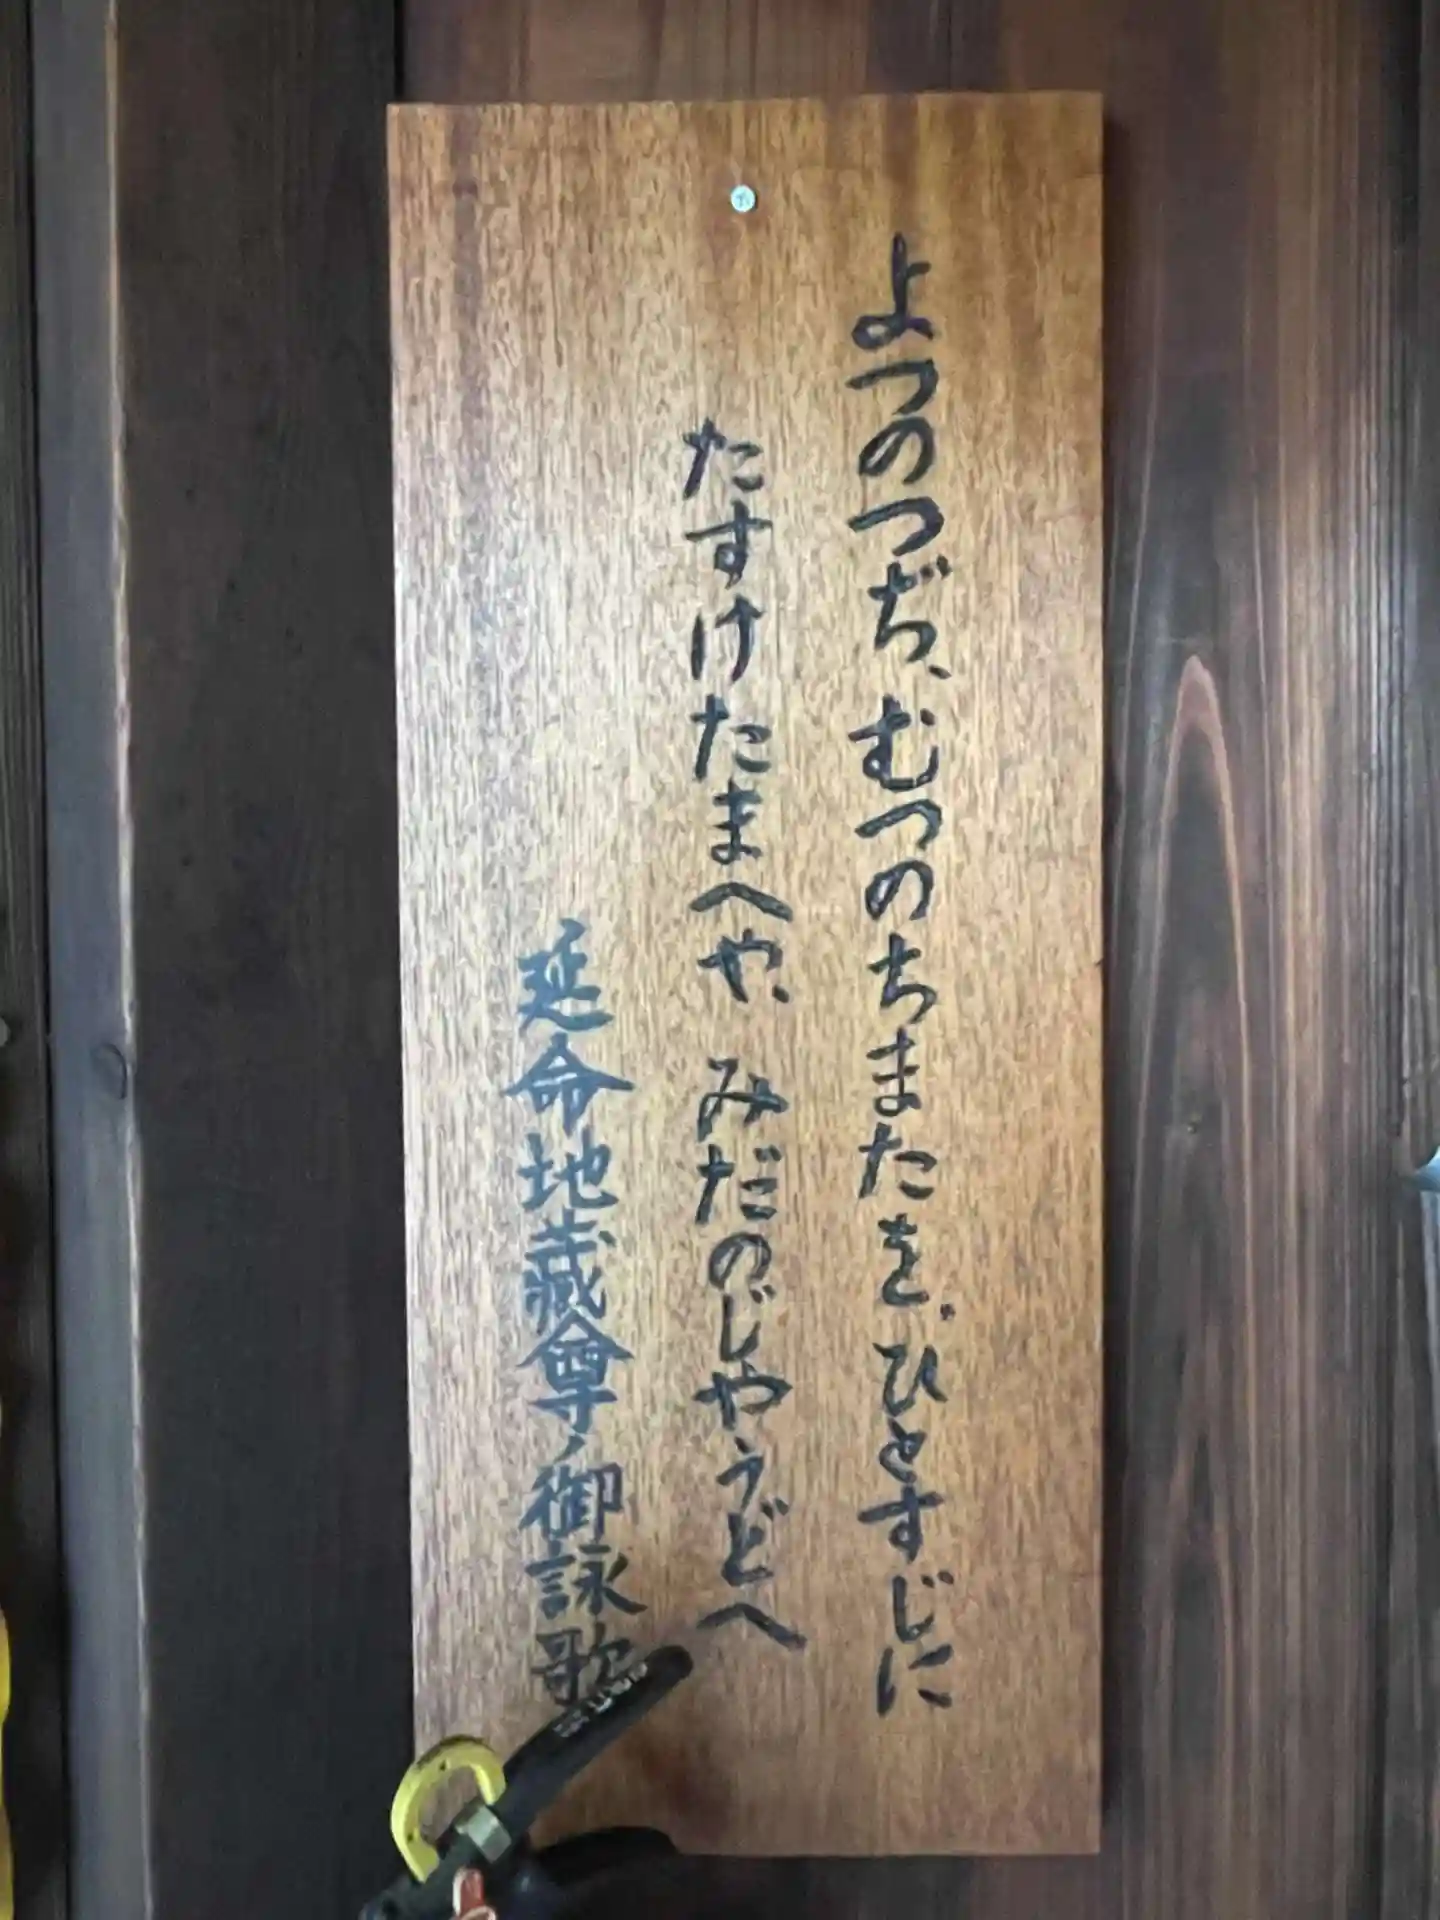 よつのつぢ、むつのちまたを、ひとすじに
たすけたまへや、みだのじやうどへ
延命地蔵尊ノ御詠歌